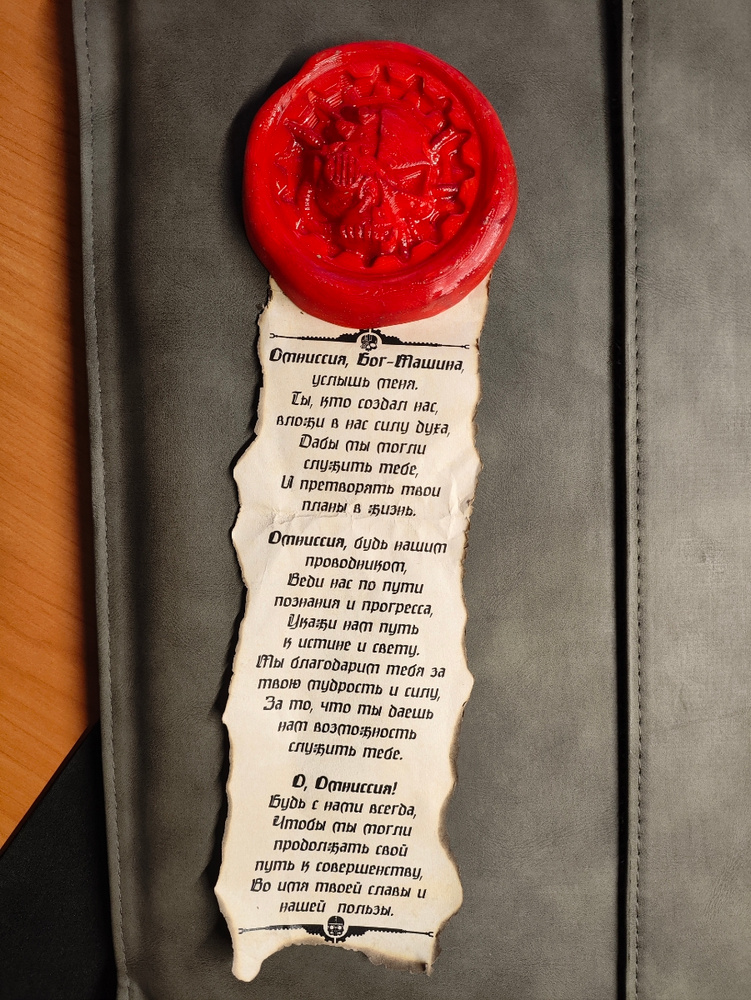 Омниссия, Бог-Машина,
услышь меня.
Ты, кто создал нас,
вложи в нас силу духа,
Дабы мы могли
служить тебе,
И претворять твои
планы в жизнь.
Омниссия, будь нашим
проводником,
Веди нас по пути
познания и прогресса,
Укажи нам путь
к истине и свету.
Мы благодарим тебя за
твою мудрость и силу,
За то, что ты даешь
нам возможность
служить тебе.
О, Омниссия!
Будь с нами всегда,
Чтобы мы могли
продолжать свой
путь к совершенству,
Во имя твоей славы и
нашей пользы.